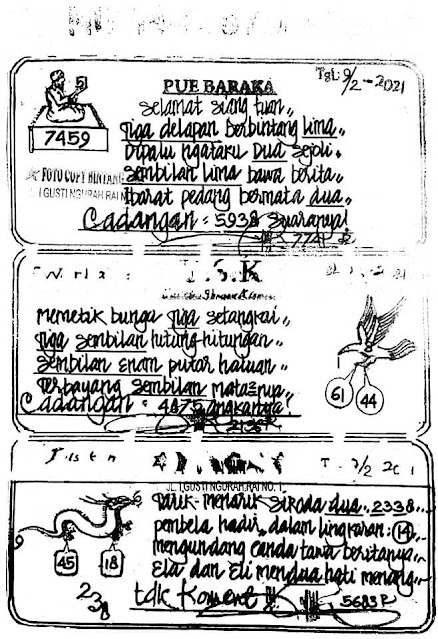 PUE BARAKA
Tgl: 9/2-2021
5
7459
FOTO COPY BINTANG
JL. I GUSTI NGURAH RAI NO
Selamat siang tuan,,
Tiga delapan berbintang lima,,
Dipalu ngataku dua sejoli.
Sembilan lima bawa berita,,
Ibarat pedang bermata dua,,
Cadangan: 5938 Suaranya!
774
T.S.K
Memetik bunga tiga setangkai,,
Tiga sembilan hitung-hitungan,,
Sembilan enam putar haluan
Terbayang sembilan matanya,,
Cadangan: 4475 angkantara
2136
61
44
JL. I GUSTI NGURAH RAI NO. 1
Tarik-menarik sikoda dua..2338..
pembela hadir dalam lingkaran: 14
mengundang canda tawa beritanya,,
Ela dan Eli mendua hati menang
tdk Koment !!
5683 R
45
18
238